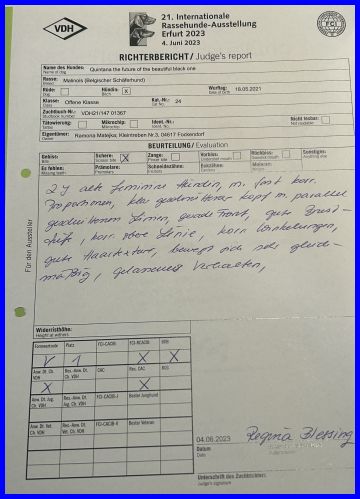 VDH
21. Internationale
Rassehunde-Ausstellung
Erfurt 2023
4. Juni 2023
FCI
RICHTERBERICHT/Judge's report
Name des Hundes: Quintana the future of the beautiful black one
Name of dog
Rasse: Malinois (Belgischer Schäferhund)
Breed
Rüde: Hündin: X Wurftag: 18.05.2021
Dog Bitch Date of birth
Klasse: Offene Klasse Kat.-Nr.: 24
Class Cat.-No.
Zuchtbuch-Nr.: VDH21/147 01367
Studbook number
Tätowierung: Mikrochip: Ident.-Nr. Nicht lesbar:
Tattoo Microchip Ident.-No. Not readable
Eigentümer: Ramona Matejka, Kleintreben Nr.3, 04617 Fockendorf
Owner
BEURTEILUNG/Evaluation
Gebiss: Schere: X Zange: Vorbiss: Rückbiss: Sonstiges:
Bite Scissor bite Pincer bite Undershot mouth Overshot mouth Anything else
Es fehlen: Prämolare: Schneidezähne: Molare:
Missing teeth Premolars Incisors Molars
Für den Aussteller
2 J alte feminine Hündin, m. fast korr.
Proportionen, klar gezeichneter Kopf m. parallel
Linien, gerade Front, gute Brust-
tiefe, korr. obere Linie, korr. Winkelungen,
gute Haartextur, bewegt sich sehr gleich-
mäßig, gelassenes Verhalten,
Widerristhöhe:
Height at withers
Formwertnote Platz FCI-CACIB FCI-RCACIB BOB
V 1 X X
Anw. Dt. Ch. VDH Res.-Anw. Dt. Ch. VDH CAC Res. CAC BOS
X X
Anw. Dt. Jug. Ch. VDH Res.-Anw. Dt. Jug. Ch. VDH FCI-CACIB-J Bester Junghund
Anw. Dt. Vet. Ch. VDH Res.-Anw. Dt. Vet. Ch. VDH FCI-CACIB-V Bester Veteran
04.06.2023 Regina Blessing
Datum
Date
Unterschrift des Zuchtrichters:
Judge's signature